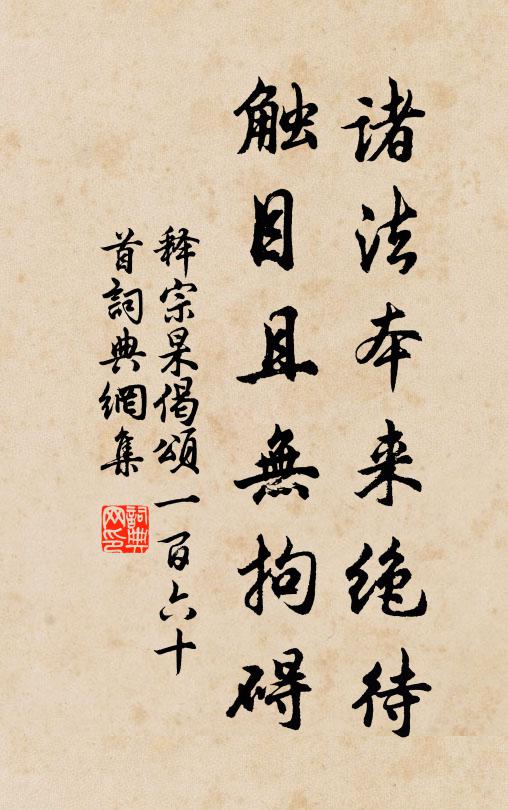 诸法本来绝待
触目且無拘碍
释宗杲偈頌一百六十
首詞典網集
詞典网印